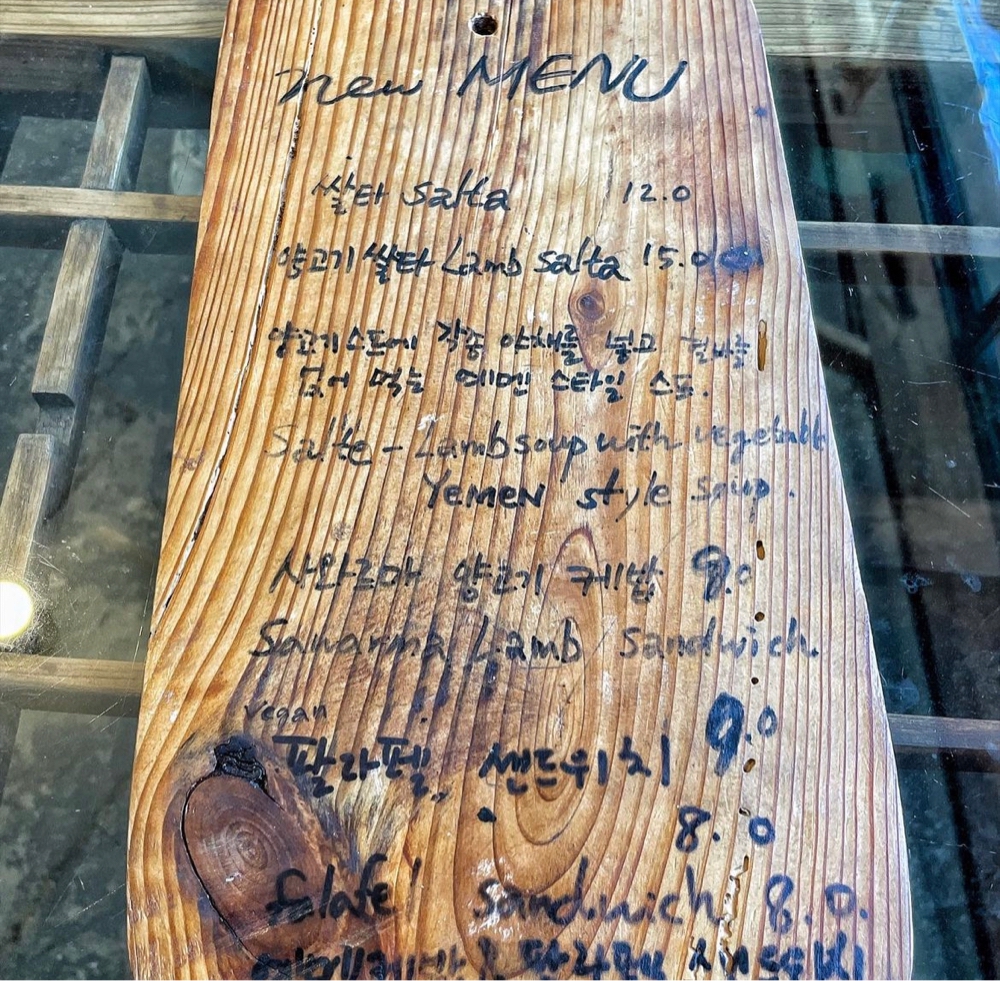 new MENU
쌀타 Salta 12.0
양고기 쌀타 Lamb Salta 15.0
양고기 스프에 각종 야채를 넣고
먹는 예멘 스타일 스프.
Salte - Lamb soup with vegetable
YEMEN style soup.
사와르마 양고기 케밥 9.0
Sawarma Lamb Sandwich.
vegan
팔라펠 샌드위치 9.0
8.0
flafel Sandwich 8.0.